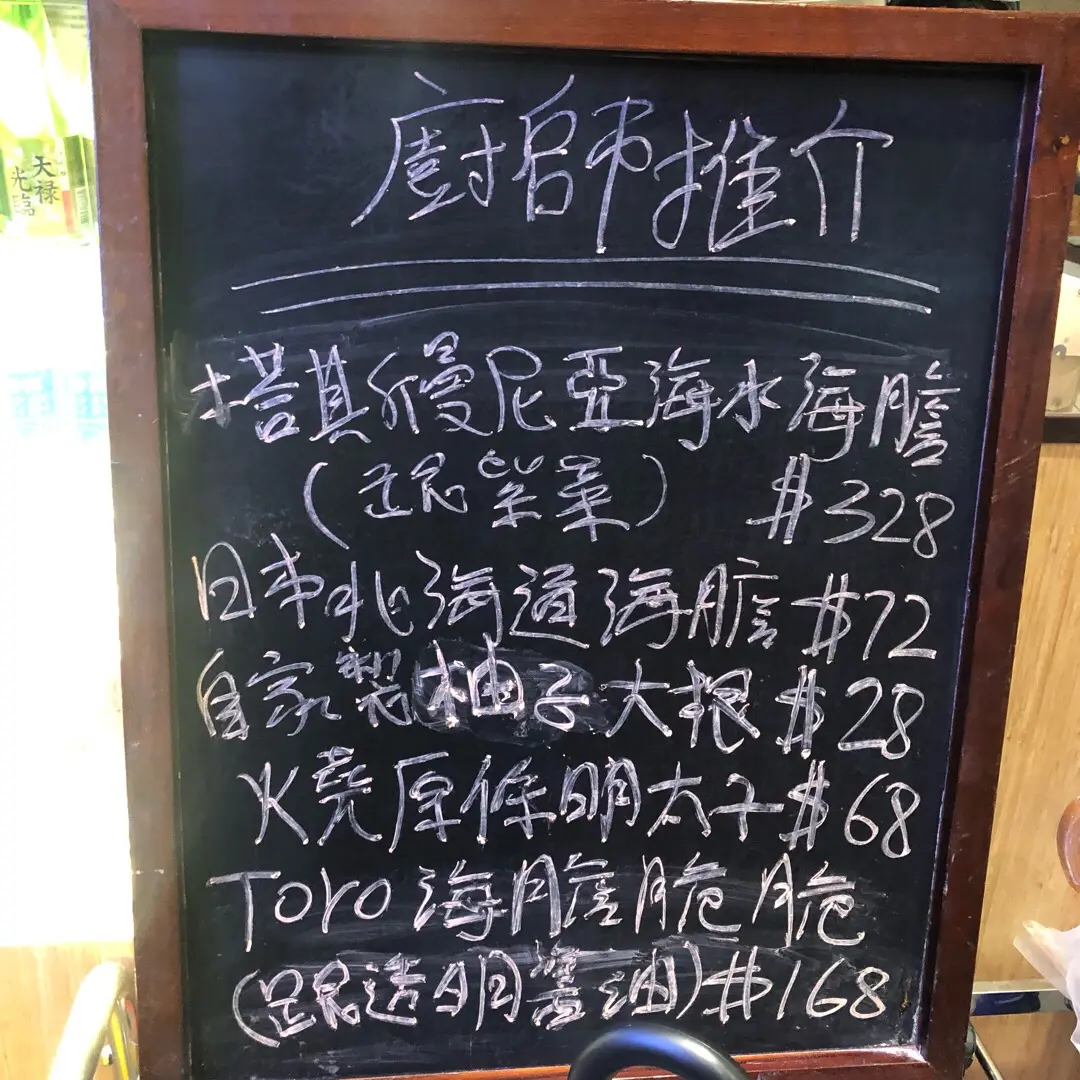 天禄
光臨
廚師推介
塔斯曼尼亞海水海膽
(跟紫菜) $328
日本北海道海膽 $72
自家製柚子大根 $28
燒原條明太子 $68
Toro 海膽脆脆
(跟透明醬油) $168